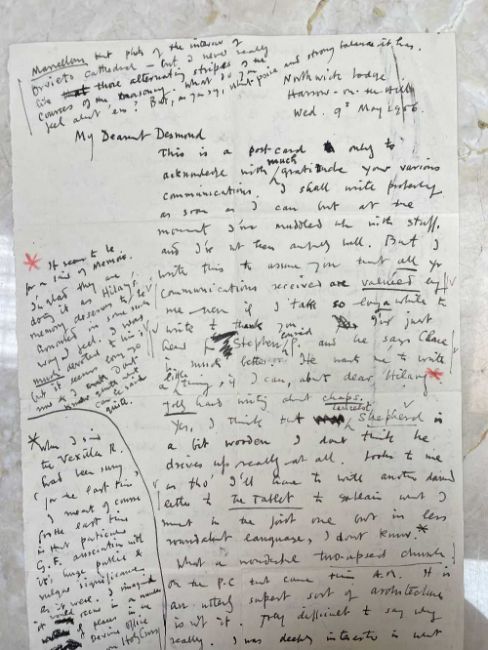 Marvellous that photo of the interior of
Orvieto Cathedral – but I never really
like those alternating stripes of the
courses of the masonry. What do you
feel about 'em? But, as you say, what poise and strong balance it has.
Northwick Lodge
Harrow-on-the-Hill
Wed. 9th May 1956
My Dearest Desmond
This is a postcard only to
acknowledge with much gratitude your various
communications. I shall write properly
as soon as I can but at the
moment I'm muddled up with stuff.
and I've not been awfully well. But I
write this to assure you that all yr
communications received are valued by
me – even if I take so long a while to
write to thank you I've just
heard Stephen/P. and he says
is much better He wants me to write
a little thing, if I can, about dear Hilary *
hard writing about chaps.
Yes, I think that Shepherd is
a bit wooden I don't think he
drives up really at all. Looks to me
as tho' I'll have to write another damn
letter to The Tablet to explain what I
meant in the first one but in less
language, I don't know. *
What a wonderful two-apsed church!
on the P.C that came this A.M. It is
an utterly superb sort of architecture
is it not. difficult to say why
really. I was deeply interested in what
* It seems to be
for a kind of memoir.
I'm glad they are
doing it as Hilary's
memory deserves to be
honoured in some such
way I feel. I was
much devoted to him
but it seems long ago
now &
can be said
quite.
* When I said
the Vexilla R.
had been sung
for the last time
I meant of course
for the last time
in that particular
G.F. association with
its huge public &
vulgar significance
as it were. I imagined
it occurs in a number
of places in the
Divine Office
on Holy Cross